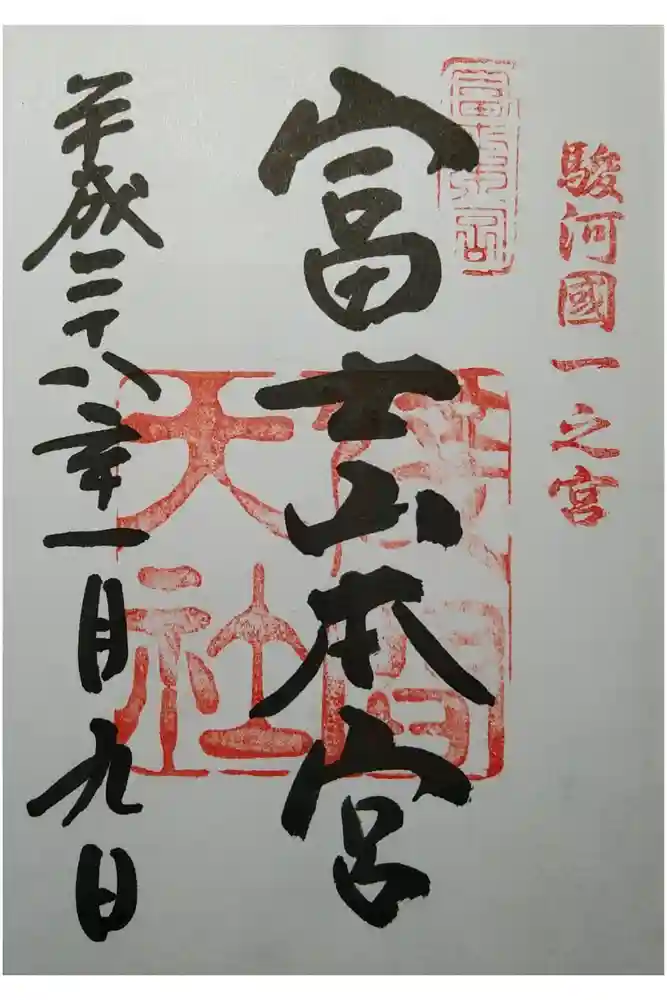 駿河國一之宮
富士山本宮
浅間
大社
平成二十八年一月九日